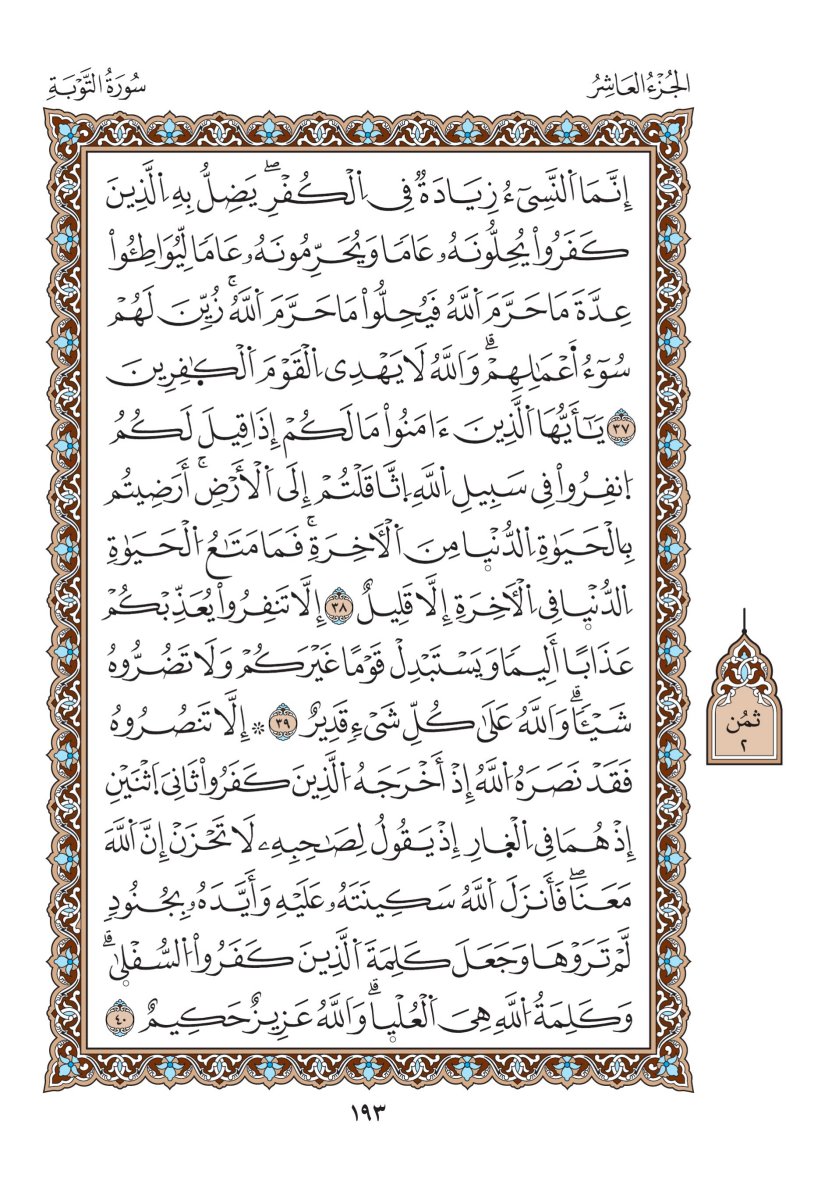 الجُزْءُ العَاشِرُ
سُورَةُ التَّوْبَةِ
إِنَّمَا اَ۬لنَّسِيٓءُ زِيَادَةٞ فِي اِ۬لْكُفْرِۖ يَضِلُّ بِهِ اِ۬لَّذِينَ
كَفَرُواْ يُحِلُّونَهُۥ عَامٗا وَيُحَرِّمُونَهُۥ عَامٗا لِّيُوَاطِـُٔواْ
عِدَّةَ مَا حَرَّمَ اَ۬للَّهُ فَيُحِلُّواْ مَا حَرَّمَ اَ۬للَّهُۚ زُيِّنَ لَهُمْ
سُوٓءُ أَعْمَٰلِهِمْۗ وَاَللَّهُ لَا يَهْدِي اِ۬لْقَوْمَ اَ۬لْكٰ۪فِرِينَ
٣٧ يَٰٓأَيُّهَا اَ۬لَّذِينَ ءَامَنُواْ مَا لَكُمْ إِذَا قِيلَ لَكُمُ
اُ۪نفِرُواْ فِي سَبِيلِ اِ۬للَّهِ اِ۪ثَّاقَلْتُمْ إِلَى اَ۬لْأَرْضِۚ أَرَضِيتُم
بِالْحَيَوٰةِ اِ۬لدُّنْي۪ا مِنَ اَ۬لْأٓخِرَةِۚ فَمَا مَتَٰعُ اُ۬لْحَيَوٰةِ
اِ۬لدُّنْي۪ا فِي اِ۬لْأٓخِرَةِ إِلَّا قَلِيلٌ ٣٨ إِلَّا تَنفِرُواْ يُعَذِّبْكُمْ
عَذَابًا أَلِيمٗا وَيَسْتَبْدِلْ قَوْمًا غَيْرَكُمْ وَلَا تَضُرُّوهُ
شَيْـٔٗاۗ وَاَللَّهُ عَلَىٰ كُلِّ شَيْءٖ قَدِيرٌ ٣٩ ۞ إِلَّا تَنصُرُوهُ
فَقَدْ نَصَرَهُ اُ۬للَّهُ إِذْ أَخْرَجَهُ اُ۬لَّذِينَ كَفَرُواْ ثَانِيَ اَ۪ثْنَيْنِ
إِذْ هُمَا فِي اِ۬لْغ۪ارِ إِذْ يَقُولُ لِصَٰحِبِهِۦ لَا تَحْزَنْ إِنَّ اَ۬للَّهَ
مَعَنَاۖ فَأَنزَلَ اَ۬للَّهُ سَكِينَتَهُۥ عَلَيْهِ وَأَيَّدَهُۥ بِجُنُودٖ
لَّمْ تَرَوْهَا وَجَعَلَ كَلِمَةَ اَ۬لَّذِينَ كَفَرُواْ اُ۬لسُّفْل۪ىٰۗ
وَكَلِمَةُ اُ۬للَّهِ هِيَ اَ۬لْعُلْي۪اۗ وَاَللَّهُ عَزِيزٌ حَكِيمٌ ٤٠
ثُمُن
٢
١٩٣